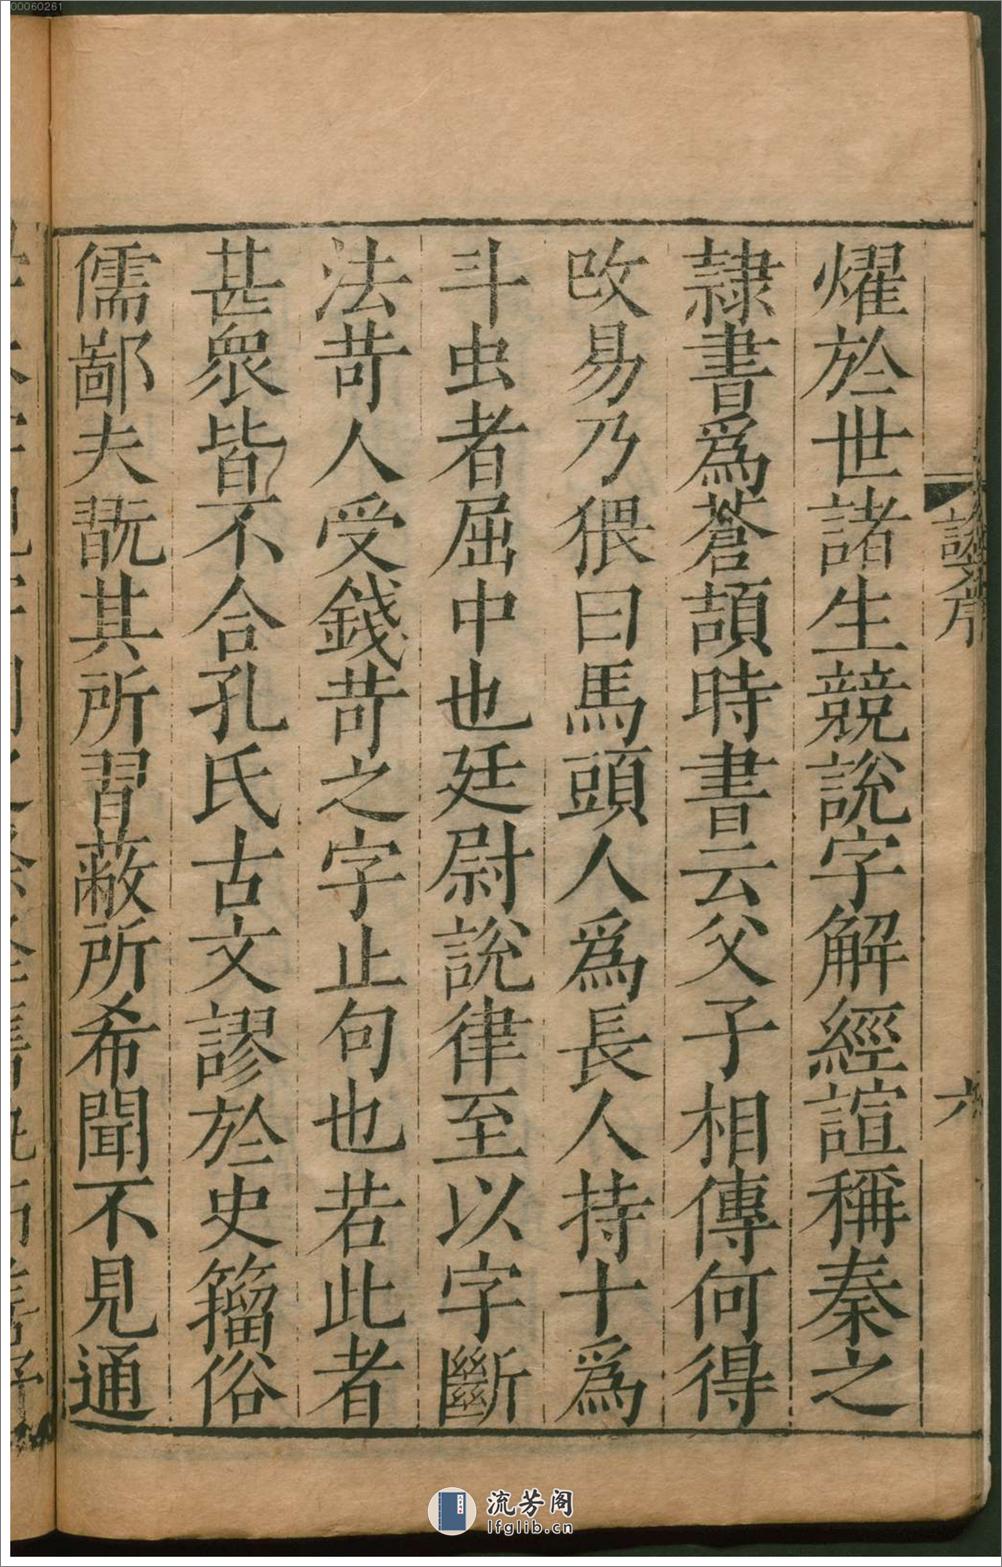 00060261
燿於世諸生競說字解經諠稱秦之
隷書爲蒼頡時書云父子相傳何得
改易乃猥曰馬頭人爲長人持十爲
斗虫者屈中也廷尉說律至以字斷
法苛人受錢苛之字止句也若此者
甚衆皆不合孔氏古文謬於史籀俗
儒鄙夫翫其所習蔽所希聞不見通
六
流芳阁
lfglib.cn